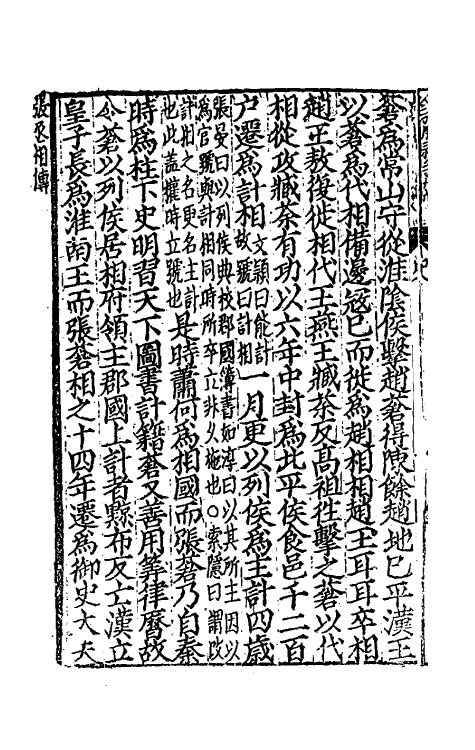 蒼爲常山守從淮陰侯擊趙蒼得陳餘趙地已平漢王
以蒼爲代相備邊寇已而徙爲趙相相趙王耳耳卒相
趙王敖復徙相代王燕王臧荼反高祖往擊之蒼以代
相從攻臧荼有功以六年中封爲北平侯食邑千二百
户遷爲計相文穎曰能計故號曰計相一月更以列侯爲主計四歲
張晏曰以列侯典校郡國簿書如淳曰以其所主因以
爲官號與計相同時所卒立非久施也○索隱曰謂改
計相之名更名主計
也此蓋權時立號也是時蕭何爲相國而張蒼乃自秦
時爲柱下史明習天下圖書計籍蒼又善用筭律曆故
令蒼以列侯居相府領主郡國上計者黥布反亡漢立
皇子長爲淮南王而張蒼相之十四年遷爲御史大夫
張丞相傳